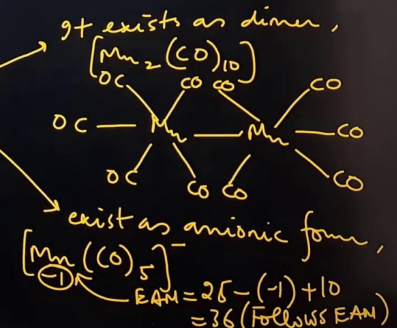 It exists as dimer,
[Mn₂(CO)₁₀]
OC CO CO CO
OC — Mn — Mn — CO
OC CO CO CO
exist as anionic form,
[Mn(CO)₅]⁻
-1 EAN = 25 - (-1) + 10
= 36 (Follows EAN)